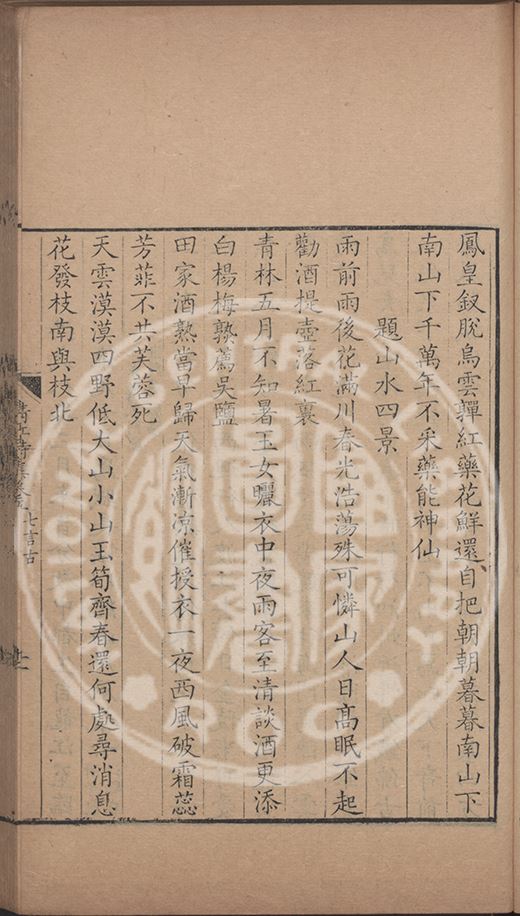 鳳皇釵脫烏雲嚲紅藥花鮮還自把朝朝暮暮南山下
南山下千萬年不采藥能神仙
題山水四景
雨前雨後花滿川春光浩蕩殊可憐山人日高眠不起
勸酒提壺落紅裏
青林五月不知暑玉女曬衣中夜雨客至清談酒更添
白楊梅熟薦吳鹽
田家酒熟當早歸天氣漸凉催授衣一夜西風破霜蕊
芳菲不共芙蓉死
天雲漠漠四野低大山小山玉筍齊春還何處尋消息
花發枝南與枝北
七言古